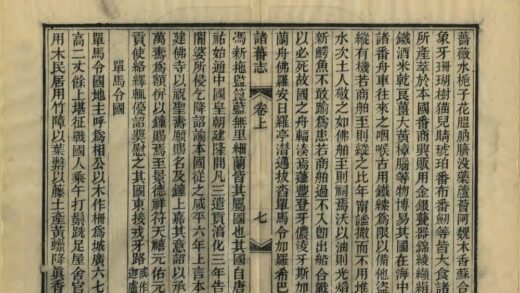 薔薇水梔子花膃肭臍沒藥蘆薈阿魏木香蘇合
象牙珊瑚樹猫兒睛琥珀番布番劍等皆大食諸
所產萃於本國番商興販用金銀甆器錦綾纈絹
鐵酒米乾良薑大黃樟腦等物博易其國在海中
諸番舟車往來之咽喉古用鐵綖為限以備他盜
縱有機若商舶至則縱之比年寧謐撤而不用堆
水次土人敬之如佛舶至則祠焉沃以油則光焰
新鱷魚不敢踰為患若商舶過不入卽出船合戰
以必死故國之舟輻湊焉蓬豐登牙儂凌牙斯加
蘭舟佛羅安日羅亭潛邁拔沓單馬令加羅希巴
諸蕃志 卷上 七
馮新拖監篦藍無里細蘭皆其屬國也其國自唐
祐始通中國皇朝建隆間凡三遣貢淳化三年告
闍婆所侵乞降詔諭本國從之咸平六年上言本
建佛寺以祝聖壽願賜名及鐘上嘉其意詔以承
萬壽為額併以鐘賜焉至景德祥符天禧元祐元
貢使絡繹輒優詔獎慰之其國東接戎牙路或作
迦盧
單馬令國
單馬令國地主呼為相公以木作柵為城廣六七
高二丈餘上堪征戰國人乘牛打鬃跣足屋舍官
用木民居用竹障以葉繫以藤土產黃蠟降眞香